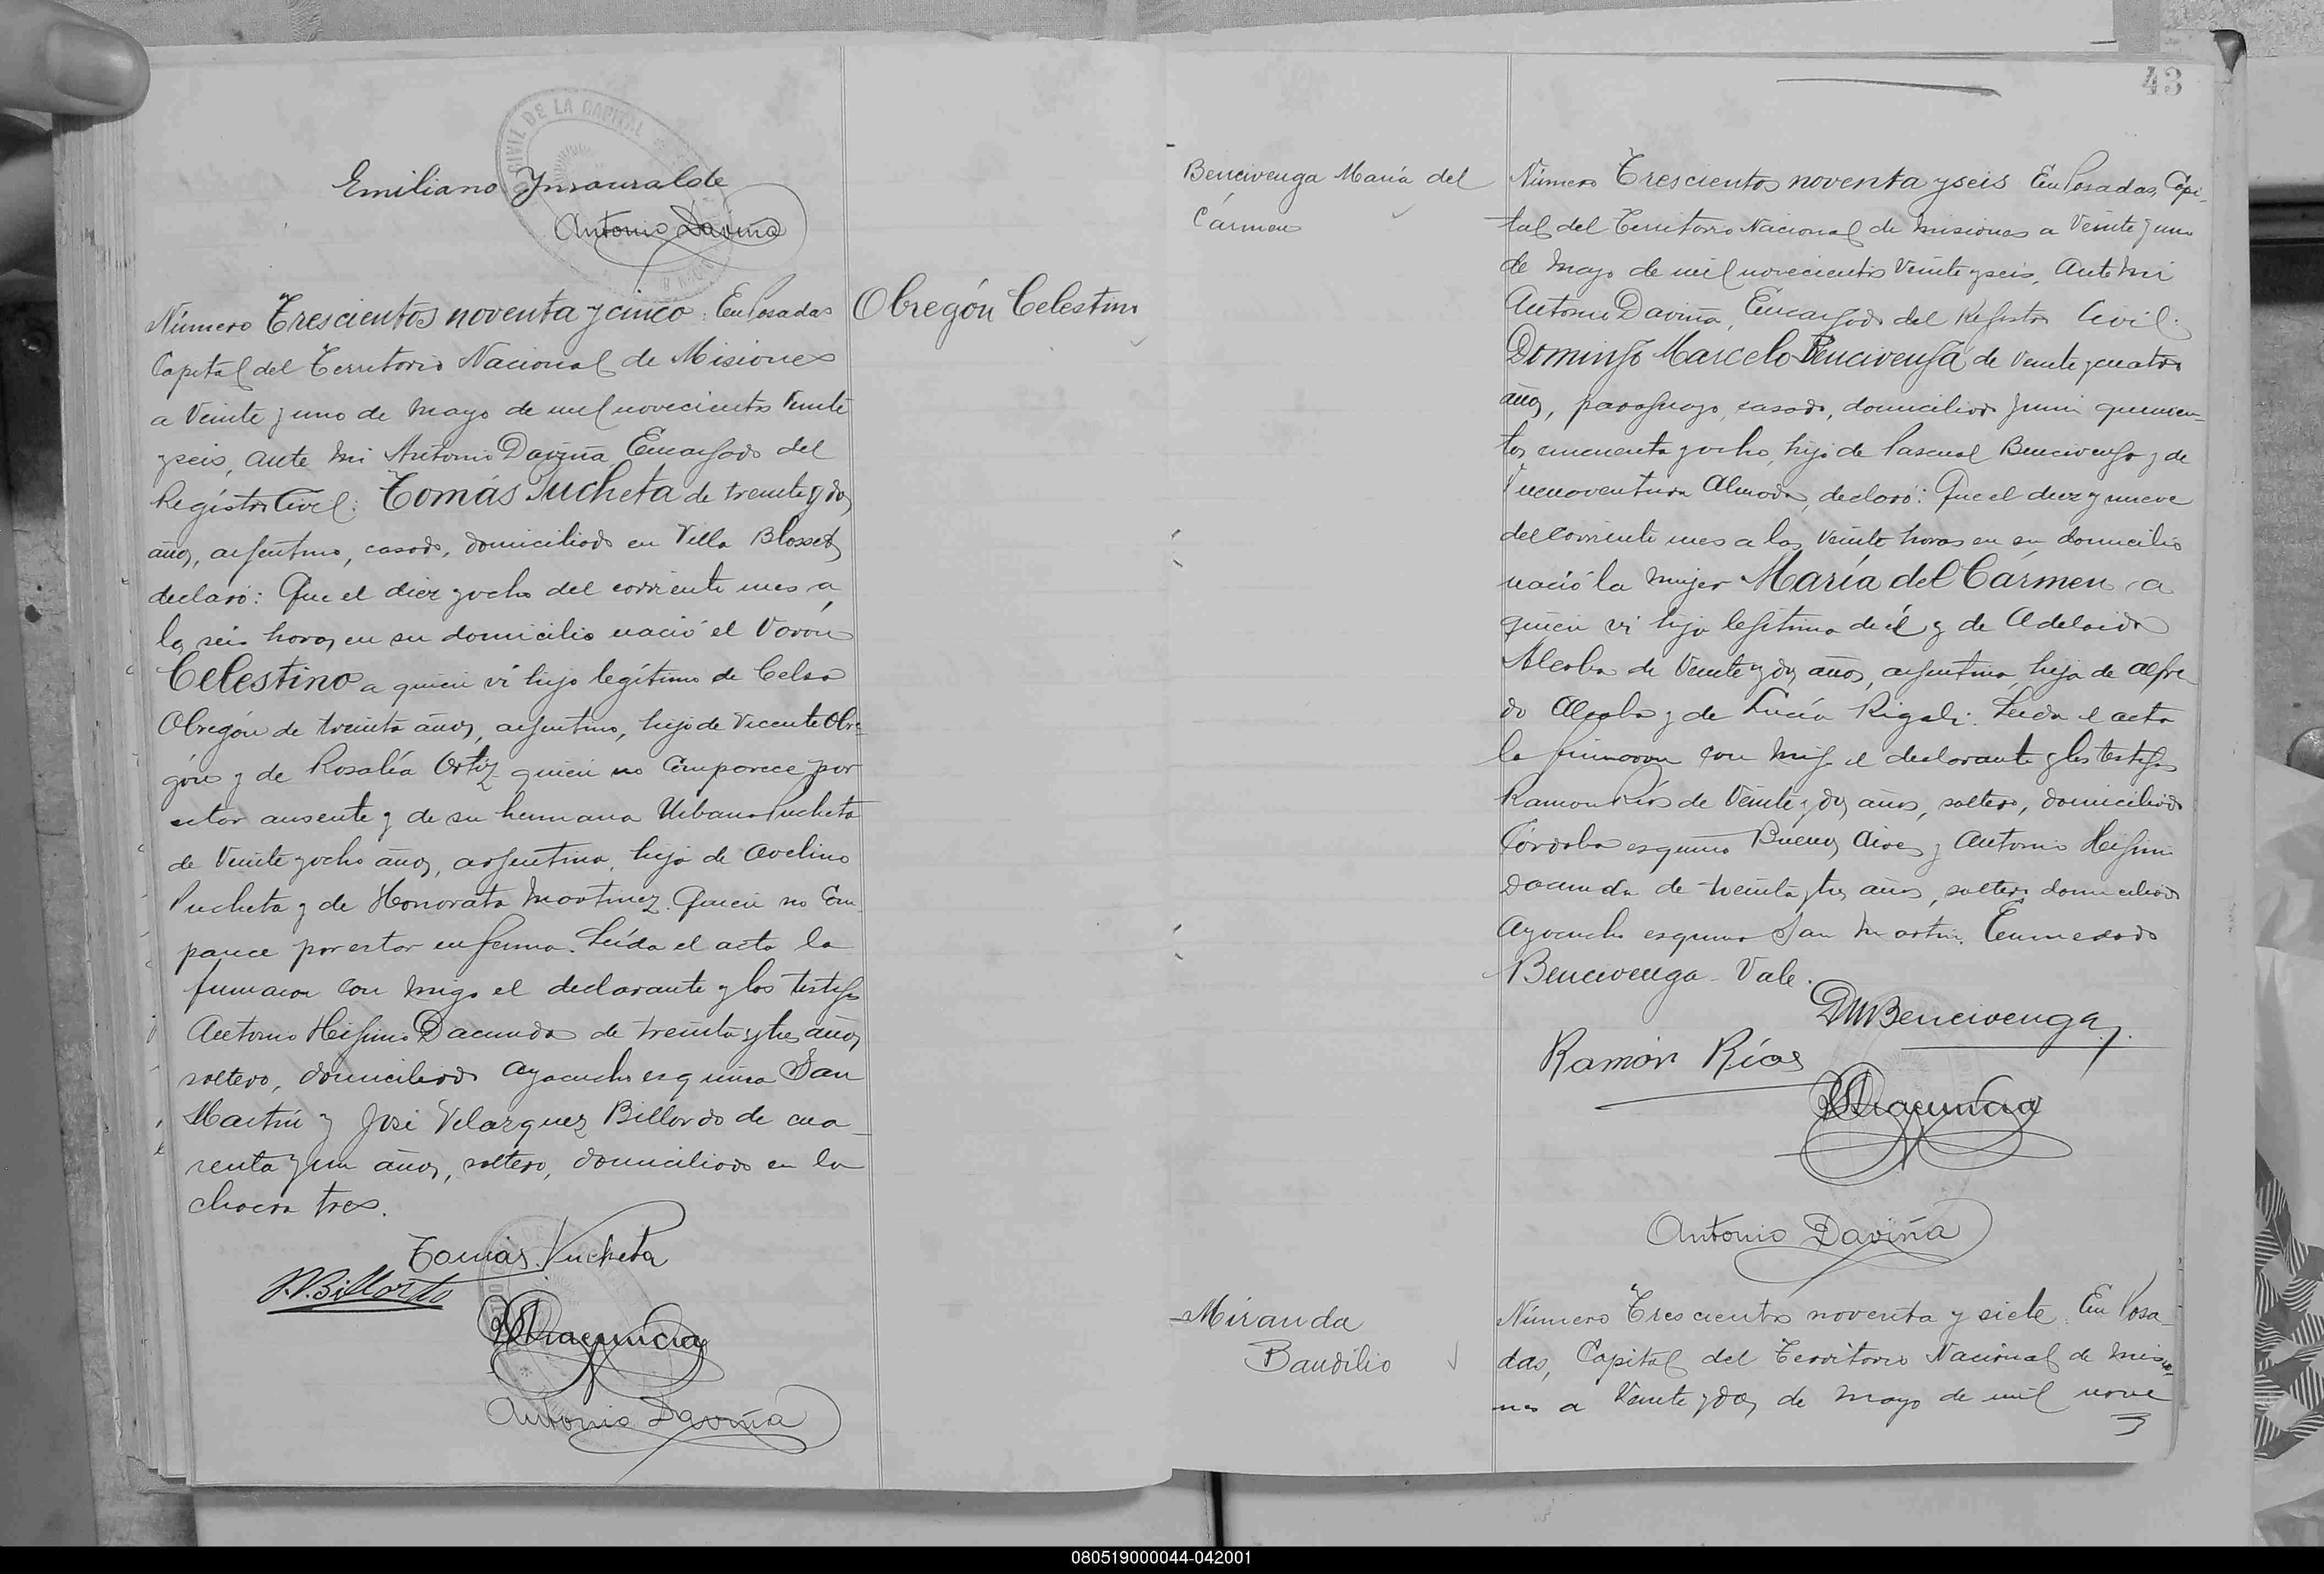 CIVIL DE LA CAPITAL
Emiliano Insaurralde
Antonio Daviña
Número Trescientos noventa y cinco: En Posadas
Capital del Territorio Nacional de Misiones
a Veinte y uno de Mayo de mil novecientos Veinte
y seis, ante mi Antonio Daviña Encargado del
Registro Civil: Tomás Pucheta de treinta y dos
años, argentino, casado, domiciliado en Villa Blosset,
declaró: Que el diez y ocho del corriente mes a
las seis horas en su domicilio nació el Varón
Celestino a quien vi hijo legítimo de Celso
Obregón de treinta años, argentino, hijo de Vicente Obre=
gón y de Rosalía Ortiz quien no Comparece por
estar ausente y de su hermana Urbana Pucheta
de Veinte y ocho años, argentina, hija de Avelino
Pucheta y de Honorata Martinez. Quien no Com-
parece por estar enferma. Leída el acta la
firmaron con migo el declarante y los testigos
Antonio Higinio Dacunda de treinta y tres años,
soltero, domiciliado Ayacucho esquina San
Martín y José Velazquez Billordo de cua-
renta y un años, soltero, domiciliado en la
chacra tres.
Tomás Pucheta
J.V.Billordo
Antonio Daviña
Obregón Celestino
43
Bencivenga María del
Cármen
Número Trescientos noventa y seis En Posadas, Capi-
tal del Territorio Nacional de Misiones a Veinte y uno
de Mayo de mil novecientos Veinte y seis, Ante Mi
Antonio Daviña, Encargado del Registro Civil:
Domingo Marcelo Bencivenga de Veinte y cuatro
años, paraguayo, casado, domiciliado Junin quinien-
tos cincuenta y ocho, hijo de Pascual Bencivenga y de
Buenaventura, declaró: Que el diez y nueve
del corriente mes a las Veinte horas en su domicilio
nació la Mujer María del Cármen a
quien vi hija legítima de él y de Adelaida
Alcoba de Veinte y dos años, argentina, hija de Alfre-
do Alcoba y de Lucía Rigali. Leída el acta
la firmaron con Migo el declarante y los testigos
Ramon Ríos de Veinte y dos años, soltero, domiciliado
Córdoba esquina Buenos Aires y Antonio Higinio
Dacunda de treinta y tres años, soltero domiciliado
Ayacucho esquina San Martin. Enmendado
Bencivenga - Vale.
DMBencivenga
Ramón Ríos
Antonio Daviña
Miranda
Baudilio
Número Trescientos noventa y siete. En Posa-
das, Capital del Territorio Nacional de Misio-
nes a Veinte y dos de Mayo de mil nove
080519000044-042001